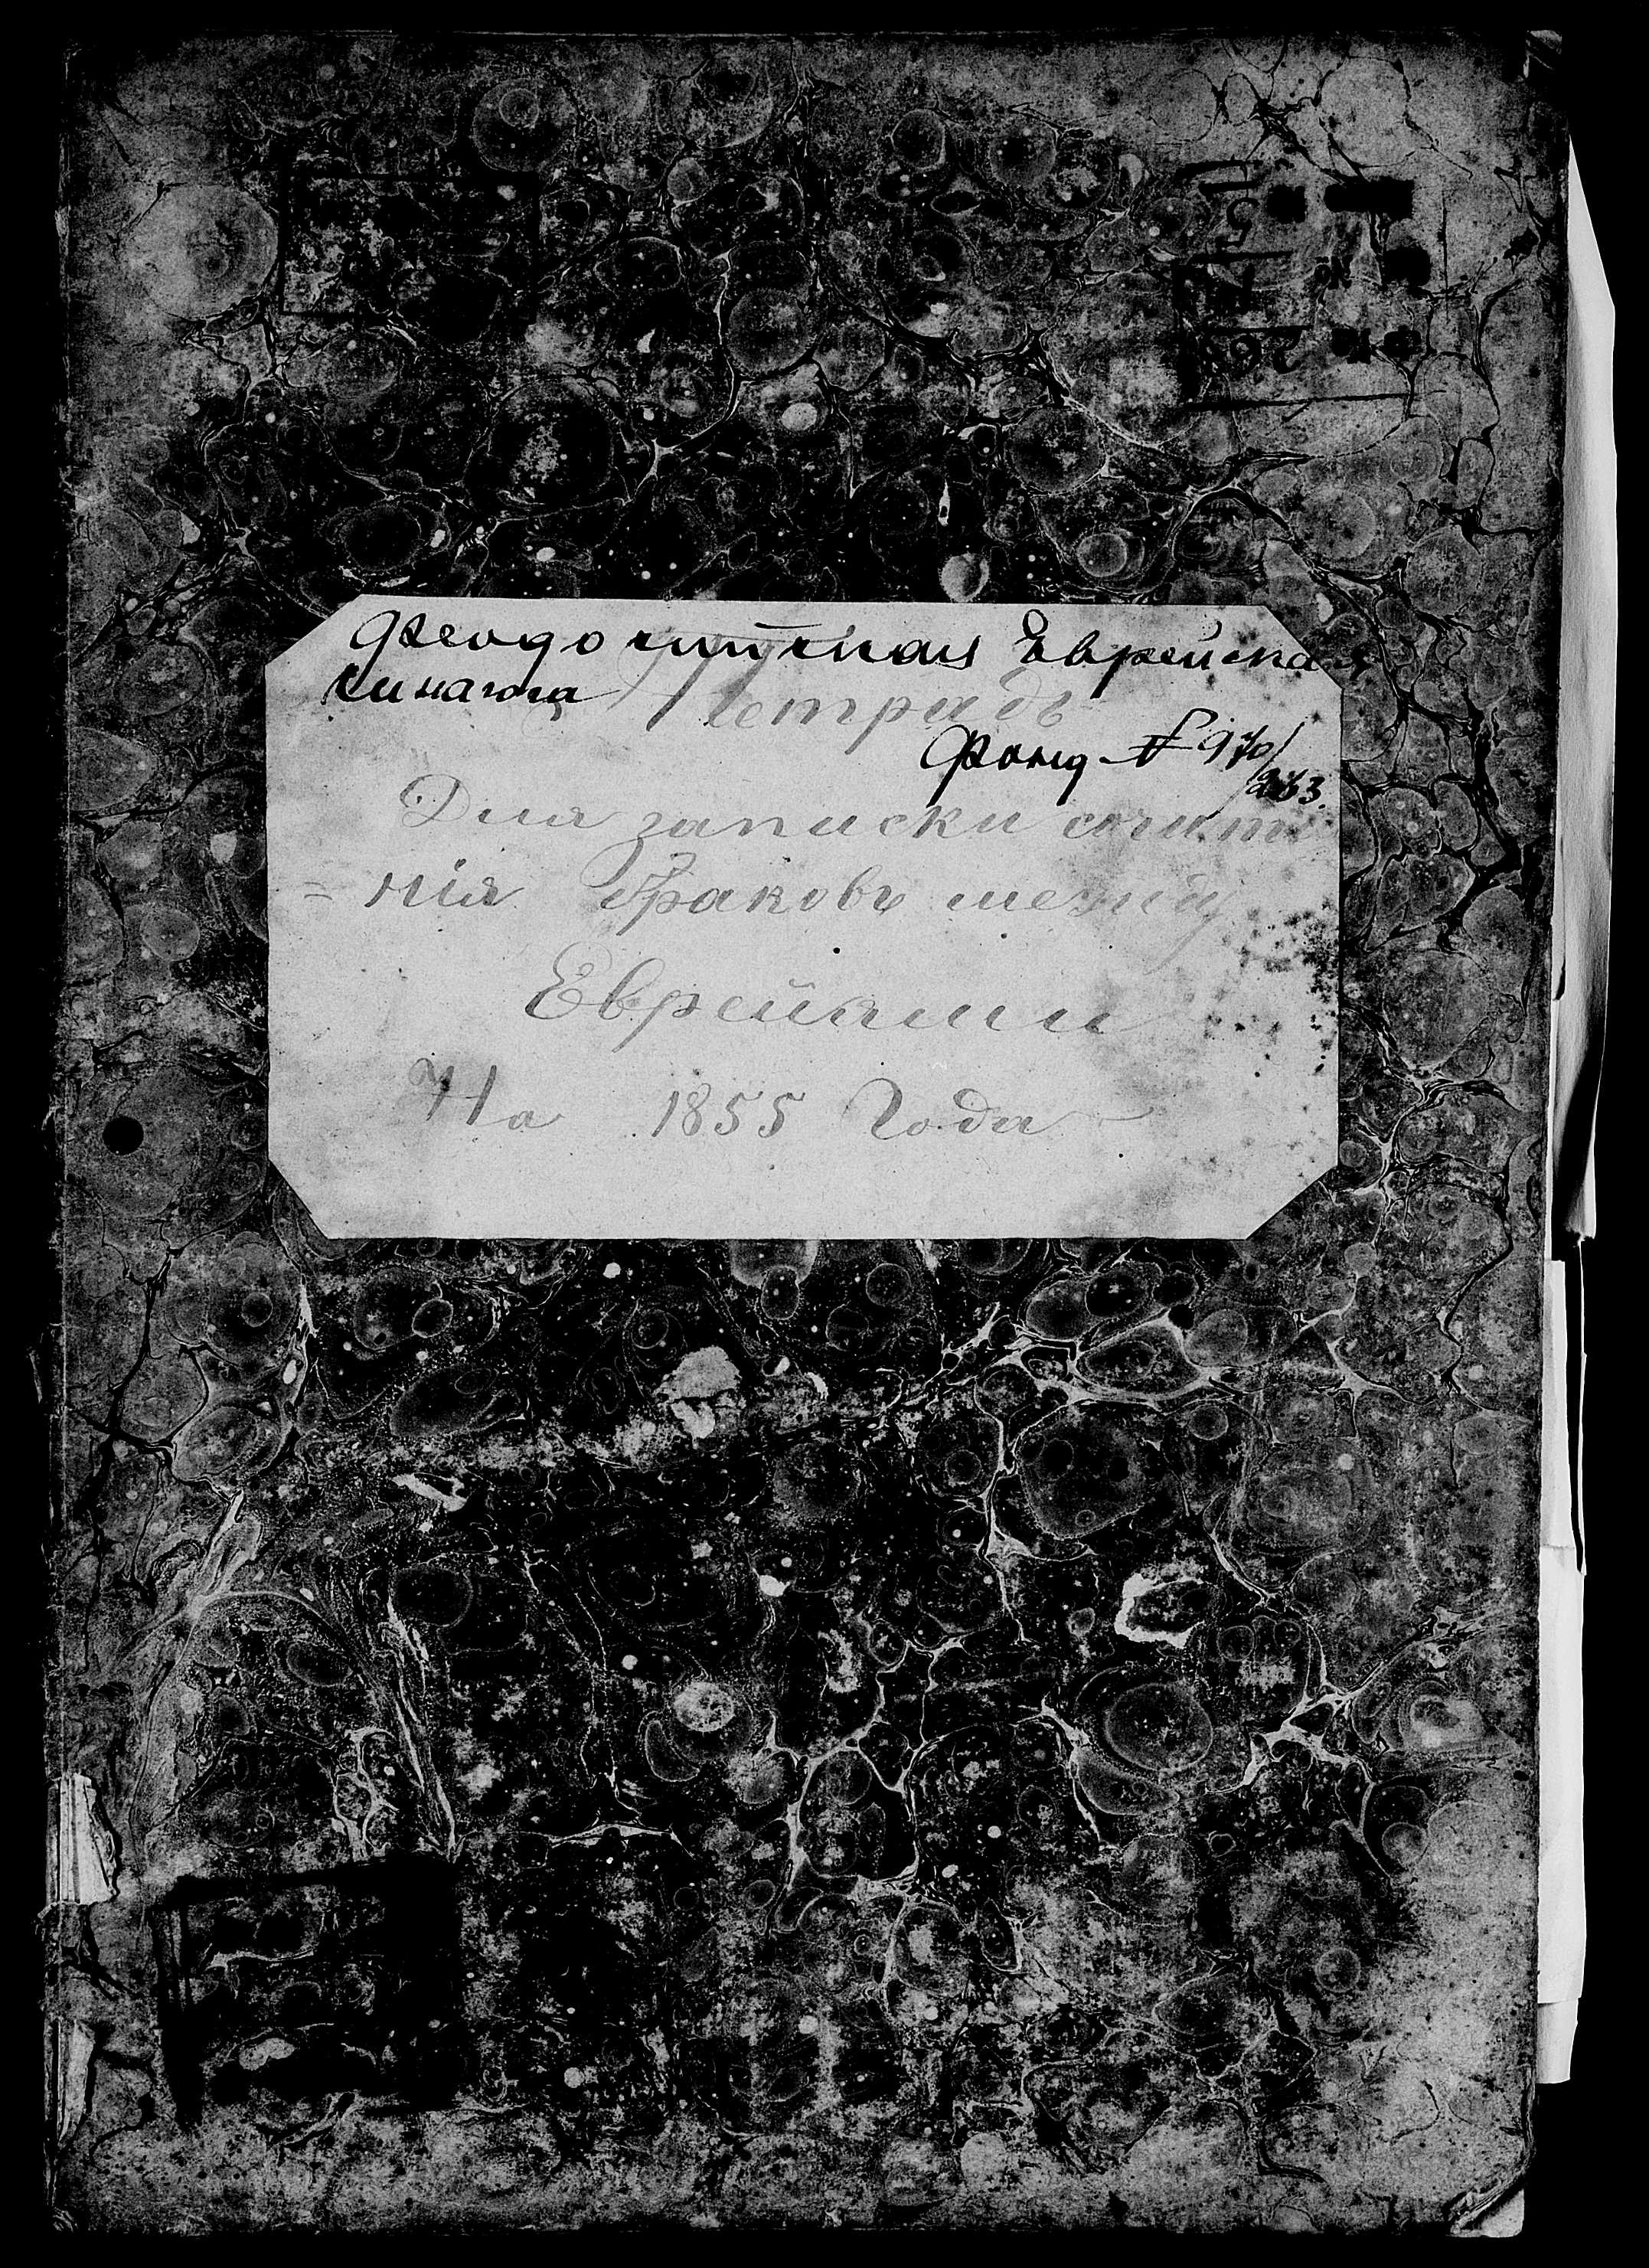 Феодосийская Еврейская
синагога
Тетрадь
Фонд № 970/
Для записки сочита
= нія Браковъ между
Евреями
На 1855 Года